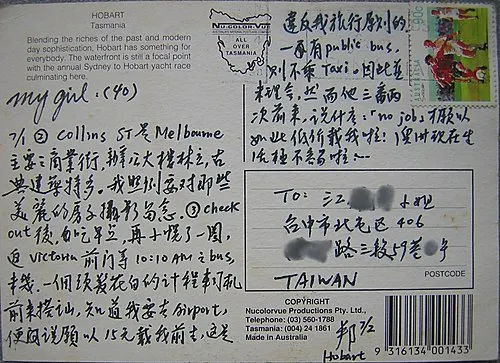 HOBART
Tasmania
Blending the riches of the past and modern
day sophistication, Hobart has something for
everybody. The waterfront is still a focal point
with the annual Sydney to Hobart yacht race
culminating here.
NU-COLOR-VUE
ALL
OVER
TASMANIA
AUSTRALIA
my girl: (40)
7/1 ② Collins ST是Melbourne
主要之商業街,辦公大樓林立,古
典建築特多。我照例要对那些
美麗的房子攝影留念。③check
out後,自吃早点,再小慌了一圈,
Victoria前门等10:10AM之bus,
一個頭髮花白的计程車司机
前来搭讪,知道我要去airport,
便說願以15元載我前去,这是
違反我旅行原則的
一再有public bus,
則不乘Taxi。因此並
未理会,然而他三番兩
次前来,說什麼:「no job,
如此低价載我啦!澳洲現在生
活極不易啦……
TO: 江 小姐
台中市北屯区 406
路三段59巷 号
TAIWAN
POSTCODE
COPYRIGHT
Nucolorvue Productions Pty. Ltd.
Telephone: (03) 560-1788
Tasmania: (004) 24 1861
Made in Australia
邦 7/2
Hobart
9 316134 001433